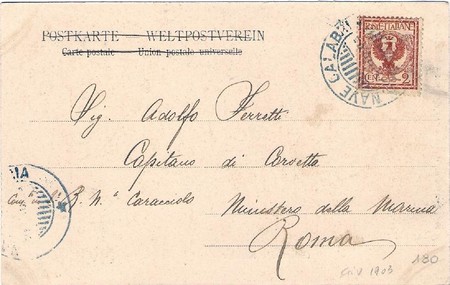 POSTKARTE — WELTPOSTVEREIN
Carte postale — Union postale universelle
NAVE CALABRIA
POSTE ITALIANE
CENT. 2
Sig. Adolfo Ferretti
Capitano di Corvetta
R. Nª Caracciolo
Ministero della Marina
Roma
1903
180